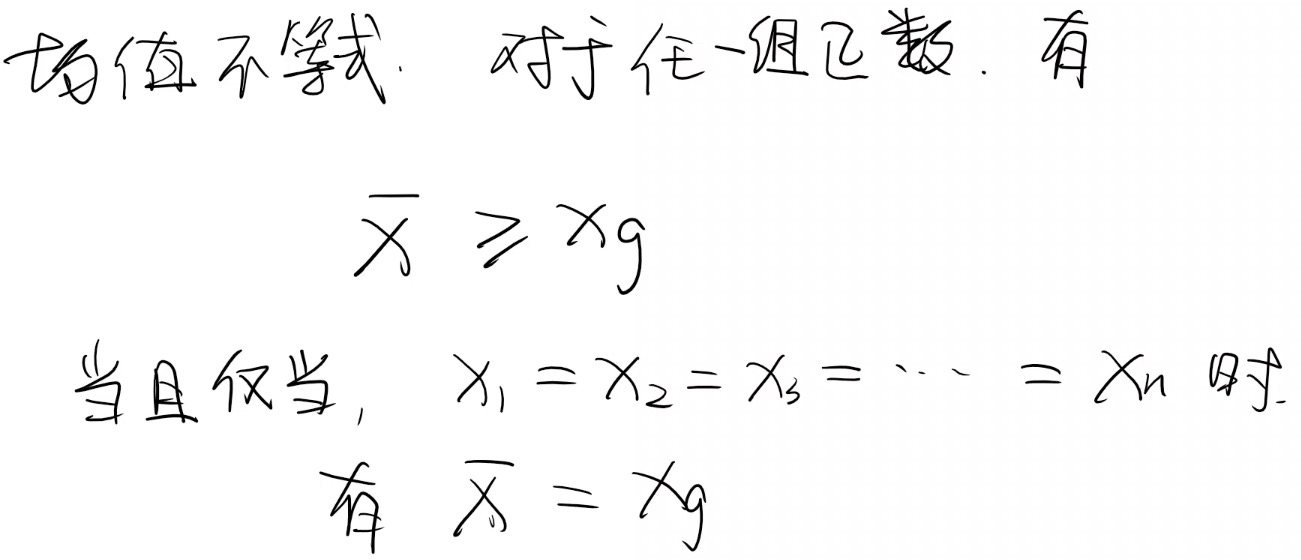 均值不等式. 对于任一组正数. 有
x̄ ≥ xg
当且仅当, x₁ = x₂ = x₃ = ⋯ = xₙ 时.
有 x̄ = xg